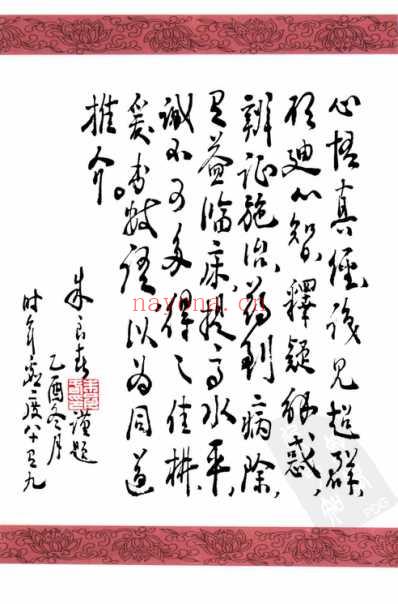 心悟真經,識見超群,
启迪心智,釋疑解惑,
辨证施治,药到病除,
益临床,提高水平,
诚不可多得之佳構,
爰書数语以为同道
推介。
朱良春 谨题
乙酉冬月
时年虚度八十又九
nayona.cn